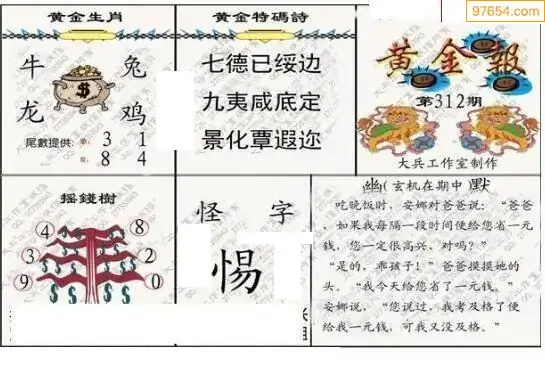 97654.com
黄金生肖
牛 兔
龙 鸡
$
尾數提供: 单: 3 1
双: 8 4
黄金特碼詩
七德已绥边
九夷咸底定
景化覃遐迩
黄金報
第312期
大兵工作室制作
摇錢樹
4 8
3 2
9 0
怪 字
惕
幽(玄机在期中)默
吃晚饭时，安娜对爸爸说：“爸爸
，如果我每隔一段时间便给您省一元
钱，您一定很高兴，对吗？”
“是的，乖孩子！”爸爸摸摸她的
头。“我今天给您省了一元钱。”
安娜说，“您说过，我考及格了便
给我一元钱，可我又没及格。”